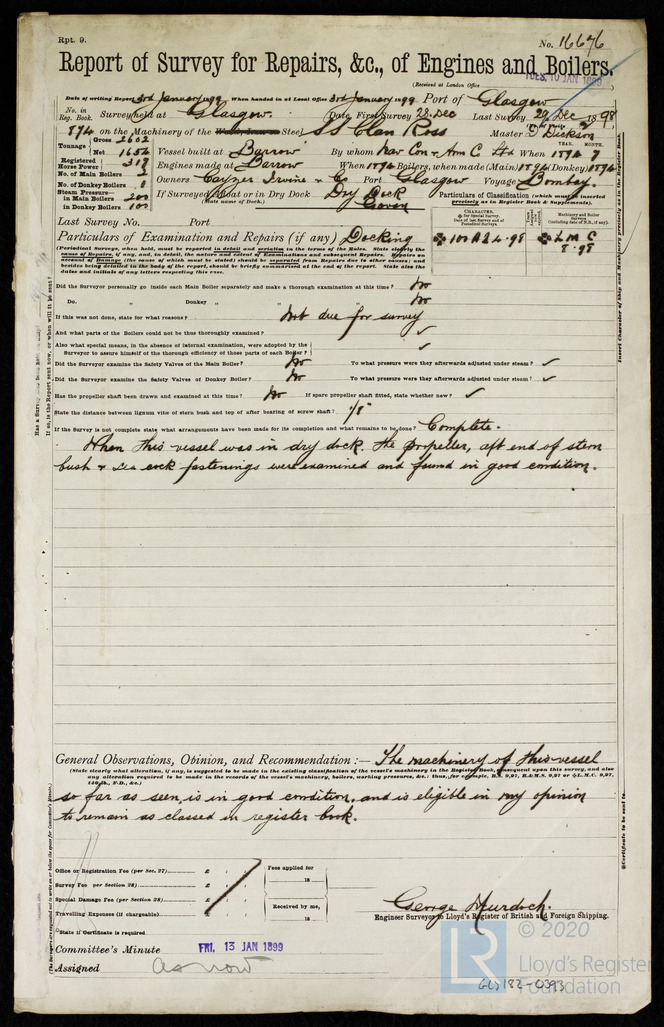 Rpt. 9.
No. 16676
Report of Survey for Repairs, &c., of Engines and Boilers.
(Received at London Office
TUES. 10 JAN 1899
Date of writing Report 3rd January 1899 When handed in at Local Office 3rd January 1899 Port of Glasgow
No. in Reg. Book. Survey held at Glasgow. Date, First Survey 28 Dec Last Survey 29 Dec 1898
874 on the Machinery of the Steel SS Clan Ross Master D Dickson
Tonnage Gross 2602
Net 1654
Vessel built at Barrow By whom Nav Con & Arm C Ltd When 1894 7
YEAR. MONTH.
Registered Horse Power 319
Engines made at Barrow When 1894 Boilers, when made (Main) 1894 (Donkey) 1894
No. of Main Boilers 2
No. of Donkey Boilers 1
Owners Cayzer Irvine & Co Port Glasgow Voyage Bombay.
Steam Pressure—
in Main Boilers 200
in Donkey Boilers 100
If Surveyed Afloat or in Dry Dock Dry Dock
(State name of Dock.) Govan
Particulars of Classification (which must be inserted precisely as in Register Book & Supplements).
Last Survey No. Port
Particulars of Examination and Repairs (if any) Docking
CHARACTER.
Machinery and Boiler Surveys
100 A1 4.98
L M C 8.98
Did the Surveyor personally go inside each Main Boiler separately and make a thorough examination at this time? No
Do. " Donkey " " " No
If this was not done, state for what reasons? Not due for survey
And what parts of the Boilers could not be thus thoroughly examined? ✓
Also what special means, in the absence of internal examination, were adopted by the
Surveyor to assure himself of the thorough efficiency of those parts of each Boiler? ✓
Did the Surveyor examine the Safety Valves of the Main Boiler? No To what pressure were they afterwards adjusted under steam? ✓
Did the Surveyor examine the Safety Valves of Donkey Boiler? No To what pressure were they afterwards adjusted under steam? ✓
Has the propeller shaft been drawn and examined at this time? No If spare propeller shaft fitted, state whether new? ✓
State the distance between lignum vitæ of stern bush and top of after bearing of screw shaft? 1/8"
If the Survey is not complete state what arrangements have been made for its completion and what remains to be done? Complete.
When this vessel was in dry dock. The propeller, aft end of stern
bush & sea cock fastenings were examined and found in good condition.
General Observations, Opinion, and Recommendation :— The machinery of this vessel
(State clearly what alteration, if any, is suggested to be made in the existing classification of the vessel's machinery in the Register Book, consequent upon this survey, and also
so far as seen, is in good condition, and is eligible in my opinion
to remain as classed in register book.
Office or Registration Fee (per Sec. 27) £
Survey Fee per Section 28) £
Special Damage Fee (per Section 28) £
Travelling Expenses (if chargeable) £
Fees applied for
18
Received by me,
18
State if Certificate is required
George Murdoch.
Engineer Surveyor to Lloyd's Register of British and Foreign Shipping.
Committee's Minute FRI. 13 JAN 1899
Assigned as now
© 2020
LR
Lloyd's Register
Foundation
GLS182-0393